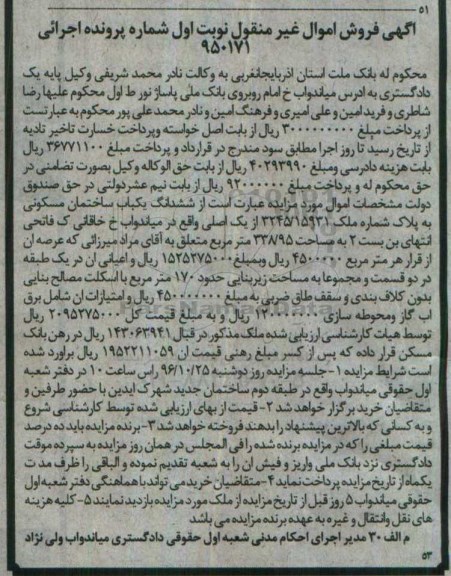 ۵۱
آگهی فروش اموال غیر منقول نوبت اول شماره پرونده اجرائی
۹۵۰۱۷۱
محکوم له بانک ملت استان اذربایجانغربی به وکالت نادر محمد شریفی وکیل پایه یک
دادگستری به ادرس میاندواب خ امام روبروی بانک ملی پاساژ نور ط اول محکوم علیها رضا
شاطری و فرید امین و علی امیری و فرهنگ امین و نادر محمد علی پور محکوم به عبارتست
از پرداخت مبلغ ۳۰۰۰۰۰۰۰۰۰ ریال از بابت اصل خواسته وپرداخت خسارت تاخیر تادیه
از تاریخ رسید تا روز اجرا مطابق سود مندرج در قرارداد و پرداخت مبلغ ۳۶۷۷۱۱۰۰ ریال
بابت هزینه دادرسی ومبلغ ۴۰۲۹۳۹۹۰ ریال از بابت حق الوکاله وکیل بصورت تضامنی در
حق محکوم له و پرداخت مبلغ ۹۲۰۰۰۰۰۰ ریال از بابت نیم عشردولتی در حق صندوق
دولت مشخصات اموال مورد مزایده عبارت است از ششدانگ یکباب ساختمان مسکونی
به پلاک شماره ملک ۳۲۴۵/۱۵۹۳۱ از یک اصلی واقع در میاندواب خ خاقانی ک فاتحی
انتهای بن بست ۲ به مساحت ۳۳۸/۹۵ متر مربع متعلق به آقای مراد میرزائی که عرصه ان
از قرار هر متر مربع ۴۵۰۰۰۰۰ ریال وبمبلغ ۱۵۲۵۲۷۵۰۰۰ ریال و اعیانی ان در یک طبقه
در دو قسمت و مجموعا به مساحت زیربنایی حدود ۱۷۰ متر مربع با اسکلت مصالح بنایی
بدون کلاف بندی و سقف طاق ضربی به مبلغ ۴۵۰۰۰۰۰۰۰ ریال و امتیازات ان شامل برق
اب گاز ومحوطه سازی ۱۲۰۰۰۰۰۰۰ ریال و به مبلغ قیمت کل ۲۰۹۵۲۷۵۰۰۰ ریال
توسط هیات کارشناسی ارزیابی شده ملک مذکور در قبال ۱۴۳۰۶۳۹۴۱ ریال در رهن بانک
مسکن قرار داده که پس از کسر مبلغ رهنی قیمت ان ۱۹۵۲۲۱۱۰۵۹ ریال براورد شده
است شرایط مزایده ۱- جلسه مزایده روز دوشنبه ۹۶/۱۰/۲۵ راس ساعت ۱۰ در دفتر شعبه
اول حقوقی میاندواب واقع در طبقه دوم ساختمان جدید شهرک ایدین با حضور طرفین و
متقاضیان خرید برگزار خواهد شد ۲- قیمت از بهای ارزیابی شده توسط کارشناسی شروع
و به کسانی که بالاترین پیشنهاد را بدهند فروخته خواهد شد ۳- برنده مزایده باید ده درصد
قیمت مبلغی را که در مزایده برنده شده را فی المجلس در همان روز مزایده به سپرده موقت
دادگستری نزد بانک ملی واریز و فیش ان را به شعبه تقدیم نموده و الباقی را ظرف مد ت
یکماه از تاریخ مزایده پرداخت نماید ۴- متقاضیان خرید می تواند با هماهنگی دفتر شعبه اول
حقوقی میاندواب ۵ روز قبل از تاریخ مزایده از ملک مورد مزایده بازدید نمایند ۵- کلیه هزینه
های نقل وانتقال و غیره به عهده برنده مزایده می باشد
م الف ۳۰ مدیر اجرای احکام مدنی شعبه اول حقوقی دادگستری میاندواب ولی نژاد
۵۳